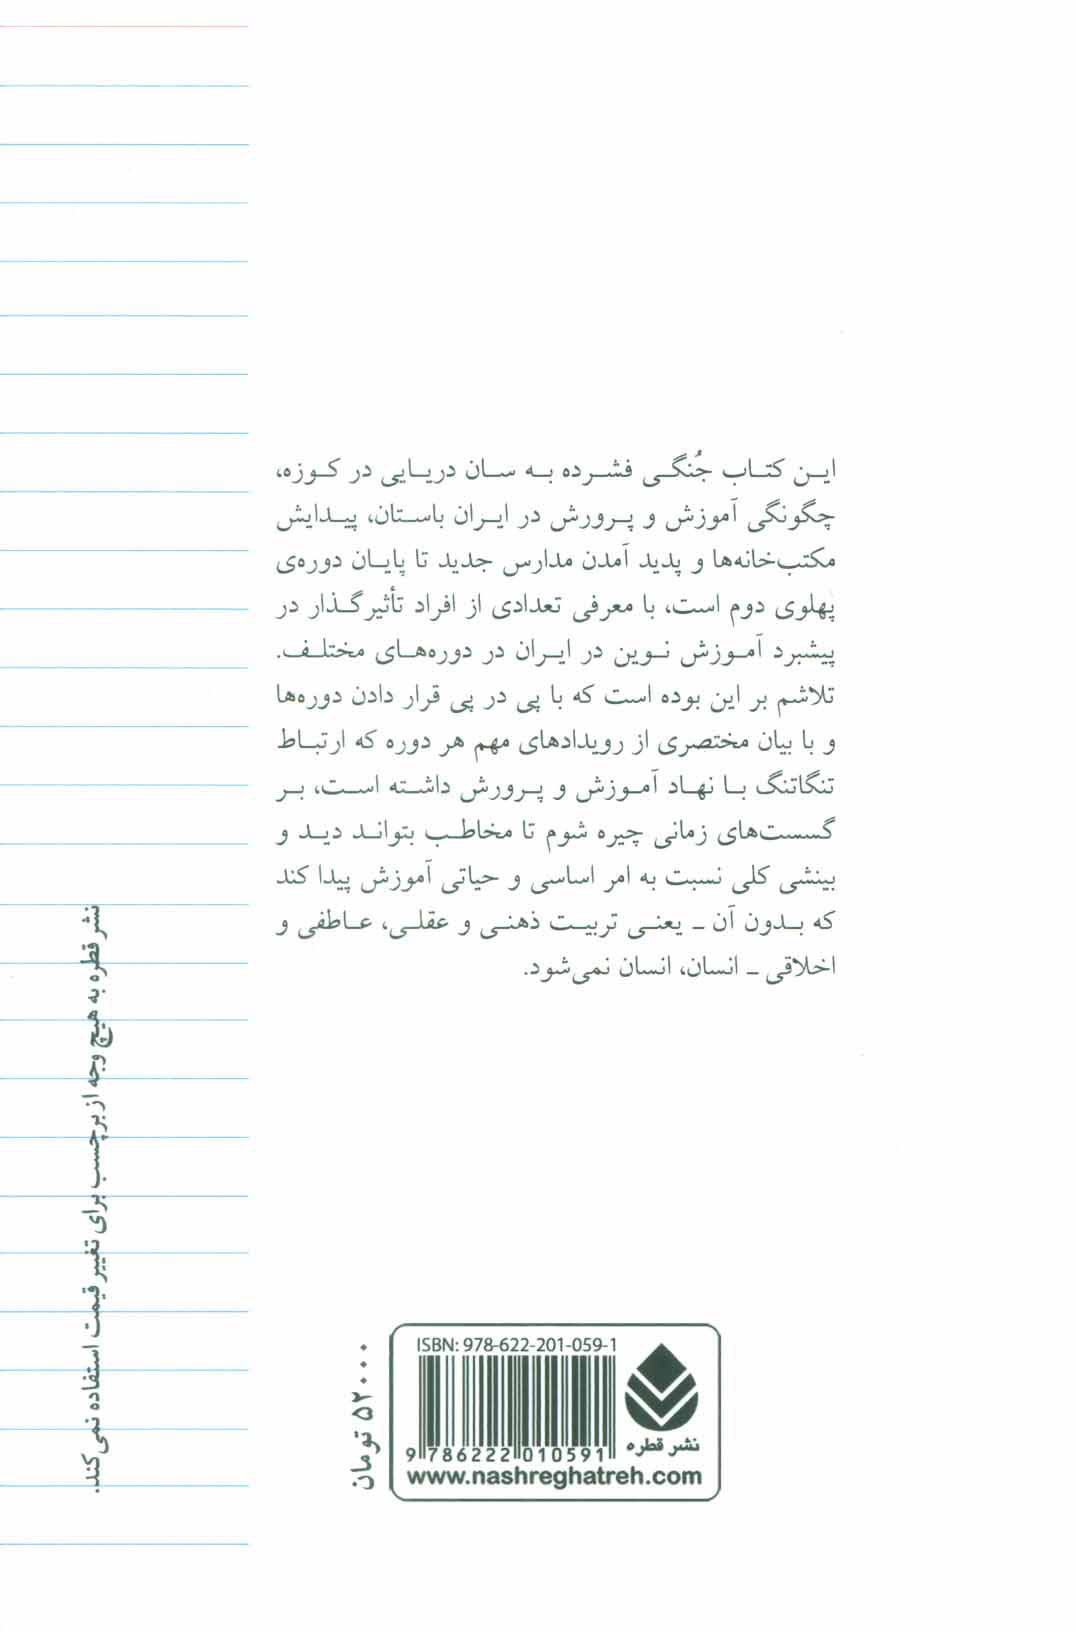 این کتاب جُنگی فشرده به سان دریایی در کوزه،
چگونگی آموزش و پرورش در ایران باستان، پیدایش
مکتب‌خانه‌ها و پدید آمدن مدارس جدید تا پایان دوره‌ی
پهلوی دوم است، با معرفی تعدادی از افراد تأثیرگذار در
پیشبرد آموزش نوین در ایران در دوره‌های مختلف.
تلاشم بر این بوده است که با پی در پی قرار دادن دوره‌ها
و با بیان مختصری از رویدادهای مهم هر دوره که ارتباط
تنگاتنگ با نهاد آموزش و پرورش داشته است، بر
گسست‌های زمانی چیره شوم تا مخاطب بتواند دید و
بینشی کلی نسبت به امر اساسی و حیاتی آموزش پیدا کند
که بدون آن ـ یعنی تربیت ذهنی و عقلی، عاطفی و
اخلاقی ـ انسان، انسان نمی‌شود.
نشر قطره به هیچ وجه از برچسب برای تغییر قیمت استفاده نمی‌کند.
۵۲۰۰۰ تومان
ISBN: 978-622-201-059-1
9 786222 010591
نشر قطره
www.nashreghatreh.com